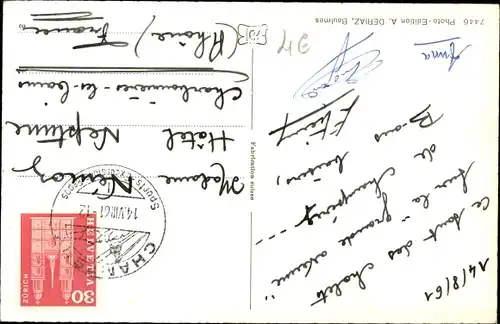 7446 Photo-Edition A. DERIAZ, Baulmes
Fabrication suisse
14/8/61
Ce sont des chalets
sur la grande avenue
de Champéry ---
Bons baisers,
Anna
Madame
Hôtel Neptune
Charbonnières-les-bains
(Rhône) France
14.VIII.61-12
HELVETIA
ZÜRICH
30